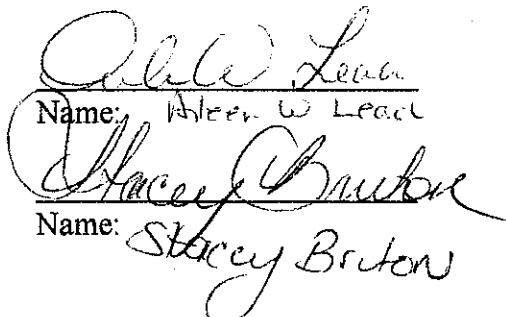 Name: Aileen W Leach
Stacey Bruton
Name: Stacey Bruton